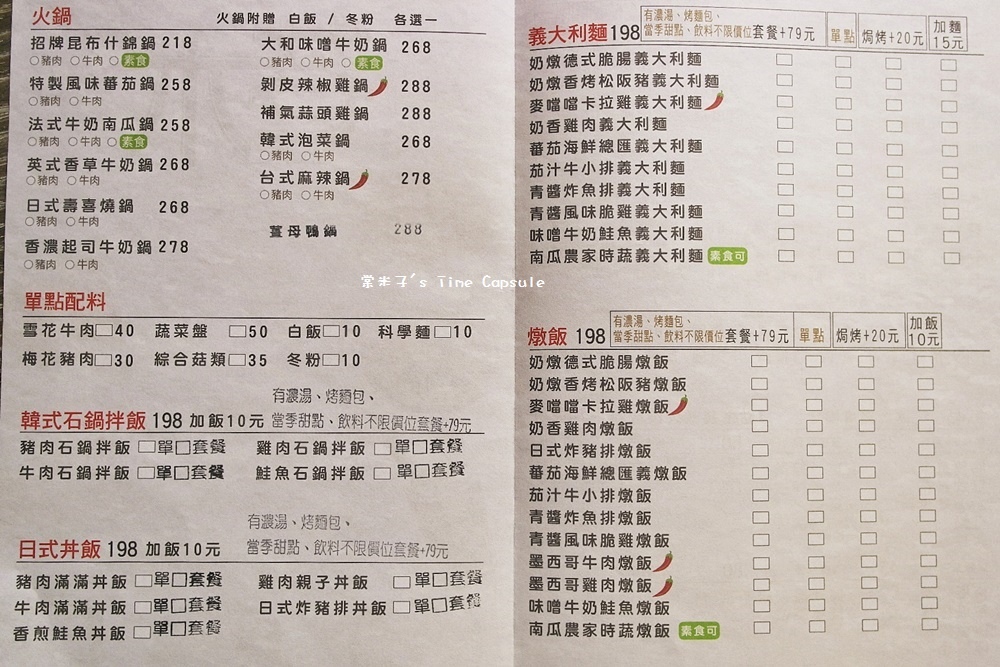 火鍋 火鍋附贈 白飯 / 冬粉 各選一
招牌昆布什錦鍋 218
○豬肉 ○牛肉 ○素食
特製風味蕃茄鍋 258
○豬肉 ○牛肉
法式牛奶南瓜鍋 258
○豬肉 ○牛肉 ○素食
英式香草牛奶鍋 268
○豬肉 ○牛肉
日式壽喜燒鍋 268
○豬肉 ○牛肉
香濃起司牛奶鍋 278
○豬肉 ○牛肉
大和味噌牛奶鍋 268
○豬肉 ○牛肉 ○素食
剝皮辣椒雞鍋 288
補氣蒜頭雞鍋 288
韓式泡菜鍋 268
○豬肉 ○牛肉
台式麻辣鍋 278
○豬肉 ○牛肉
薑母鴨鍋 288
棠米子's Time Capsule
單點配料
雪花牛肉□40 蔬菜盤 □50 白飯□10 科學麵□10
梅花豬肉□30 綜合菇類□35 冬粉□10
有濃湯、烤麵包、
韓式石鍋拌飯 198 加飯10元 當季甜點、飲料不限價位套餐+79元
豬肉石鍋拌飯 □單□套餐 雞肉石鍋拌飯 □單□套餐
牛肉石鍋拌飯 □單□套餐 鮭魚石鍋拌飯 □單□套餐
有濃湯、烤麵包、
日式丼飯 198 加飯10元 當季甜點、飲料不限價位套餐+79元
豬肉滿滿丼飯 □單□套餐 雞肉親子丼飯 □單□套餐
牛肉滿滿丼飯 □單□套餐 日式炸豬排丼飯 □單□套餐
香煎鮭魚丼飯 □單□套餐
義大利麵198 有濃湯、烤麵包、
當季甜點、飲料不限價位套餐+79元 單點 焗烤+20元 加麵
15元
奶燉德式脆腸義大利麵
奶燉香烤松阪豬義大利麵
麥噹噹卡拉雞義大利麵
奶香雞肉義大利麵
蕃茄海鮮總匯義大利麵
茄汁牛小排義大利麵
青醬炸魚排義大利麵
青醬風味脆雞義大利麵
味噌牛奶鮭魚義大利麵
南瓜農家時蔬義大利麵 素食可
燉飯 198 有濃湯、烤麵包、
當季甜點、飲料不限價位套餐+79元 單點 焗烤+20元 加飯
10元
奶燉德式脆腸燉飯
奶燉香烤松阪豬燉飯
麥噹噹卡拉雞燉飯
奶香雞肉燉飯
日式炸豬排燉飯
蕃茄海鮮總匯義燉飯
茄汁牛小排燉飯
青醬炸魚排燉飯
青醬風味脆雞燉飯
墨西哥牛肉燉飯
墨西哥雞肉燉飯
味噌牛奶鮭魚燉飯
南瓜農家時蔬燉飯 素食可